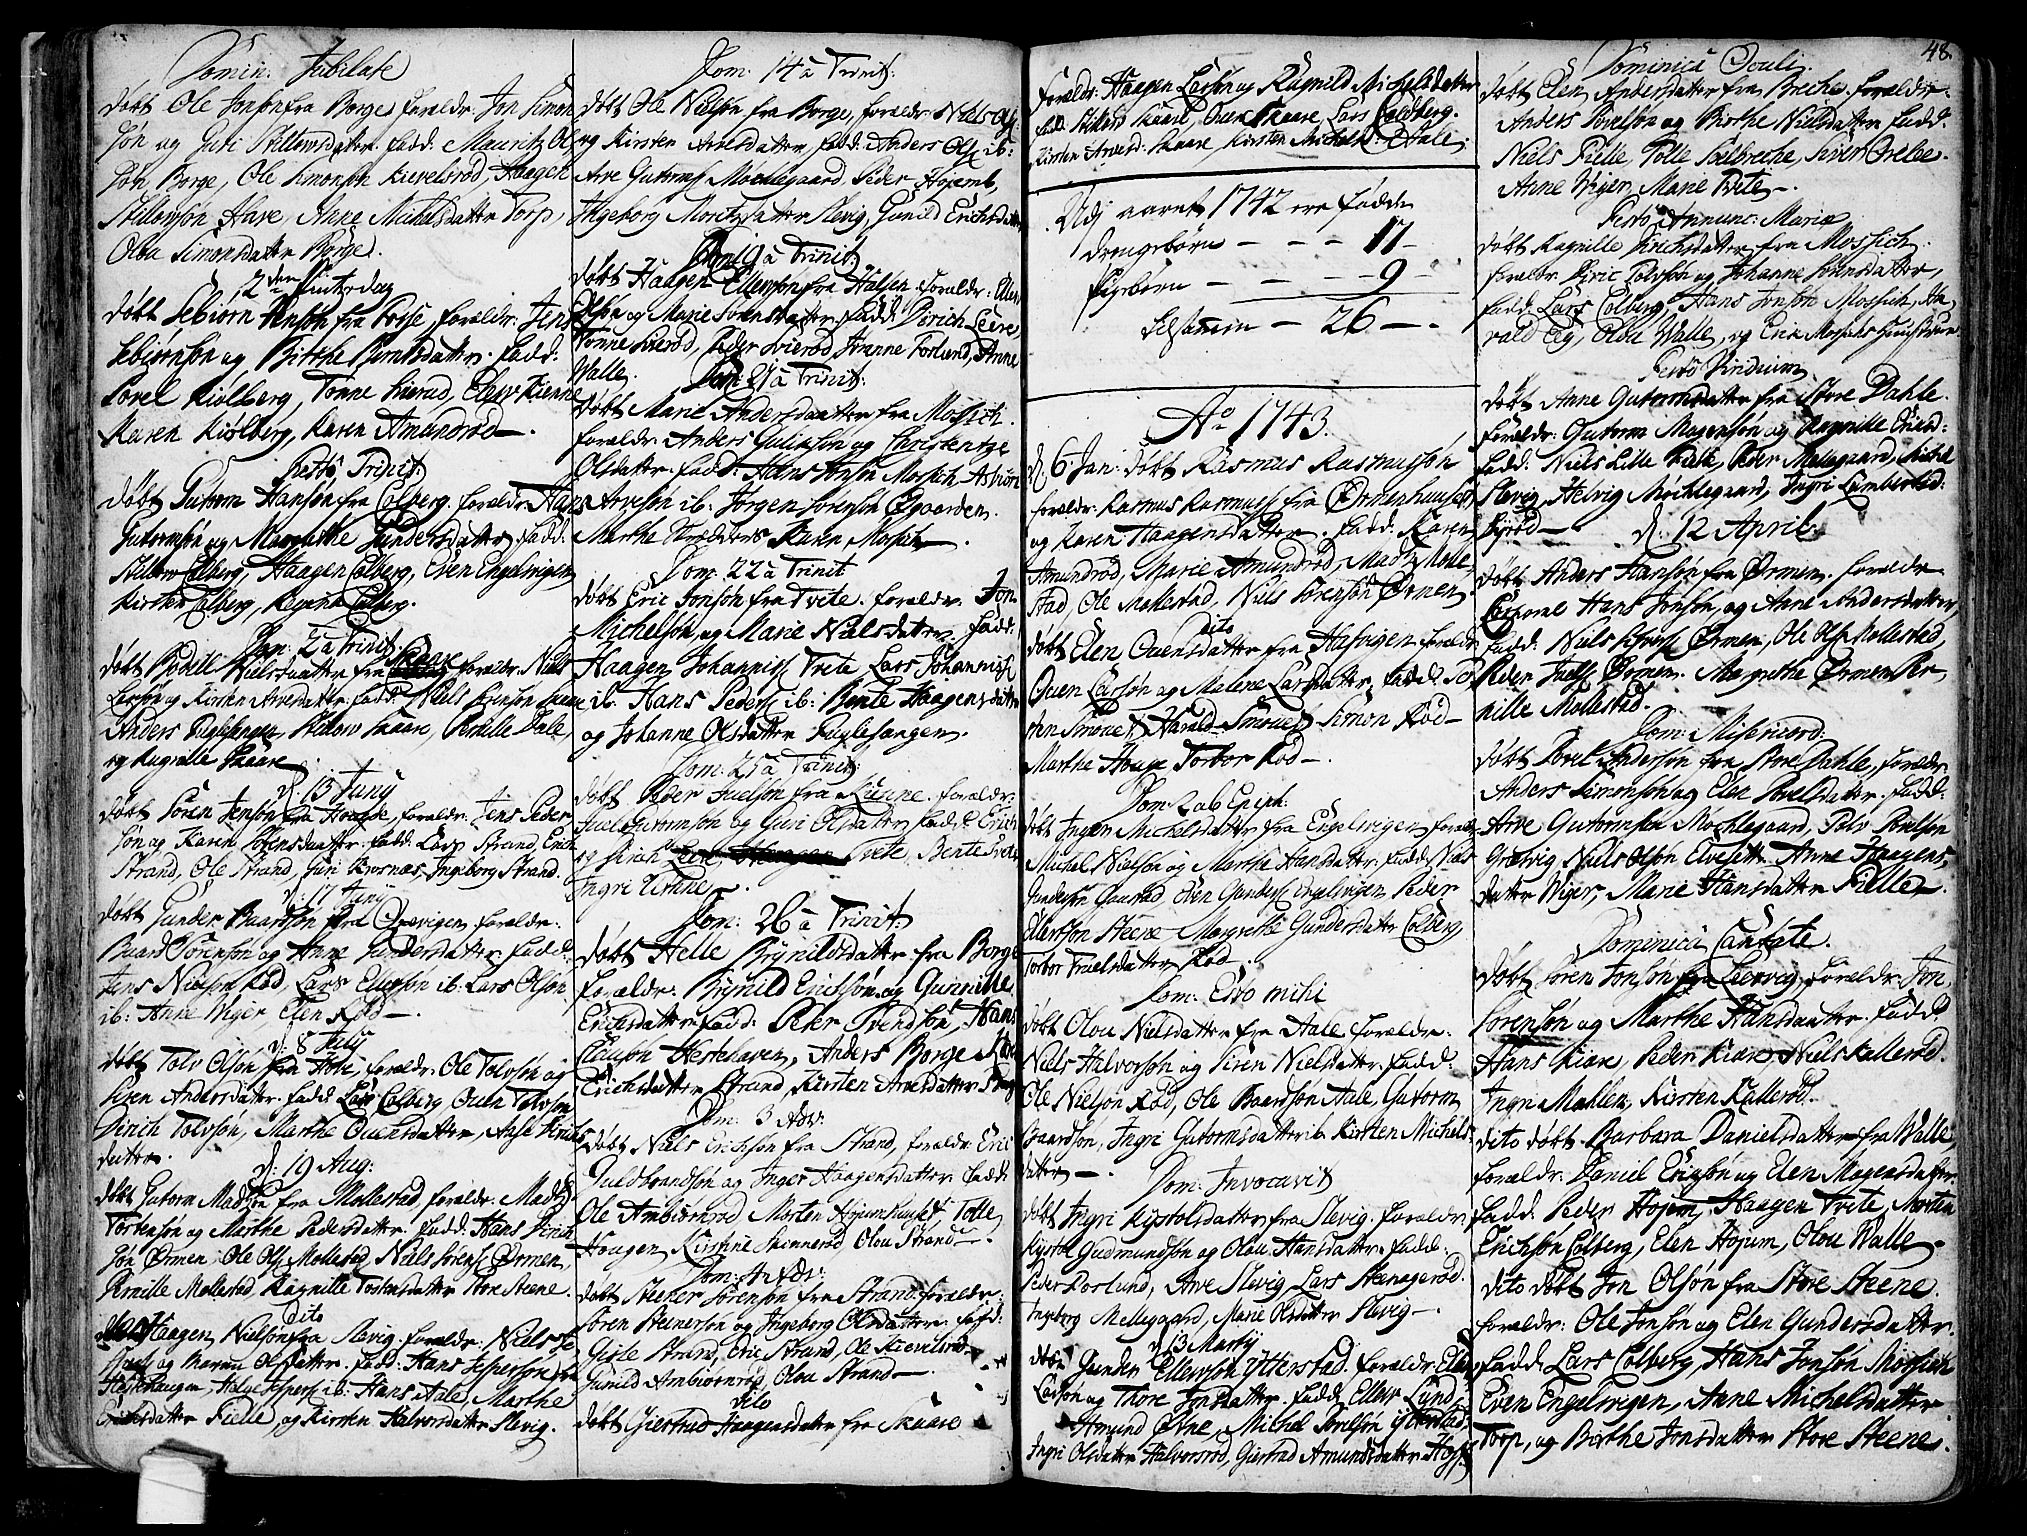 Domin: Jubilate
døbt Ole Jonsøn fra Borge, foræld: Jon Simon
søn og Guri Kittensdatter fadd: Mauritz Ol
søn, Borge, Ole Simonsøn Kievelsrød, Haagen
Aase, Anne Michelsdatter Torp,
Olou Simonsdatter Borge.
2den Pintzedag
døbt Sebiørn Jensøn fra Rosse, foræld: Jens
Sebiørnsøn og Birthe Berntsdatter. fadd:
Povel Kiølberg, Tønne Huerød, Ellew Kienne
Karen Kiølberg, Karen Amundrød.
Festo Trinit:
døbt Gutorm Hansøn fra Colberg. foræld: Hans
Gutormsøn og Margrethe Gundersdatter fadd:
Colberg, Haagen Colberg, Even Engelsvigen,
Kirsten Colberg, Colberg.
Dom: 2 a Trinit:
døbt Bodille Nielsdatter fra foræld: Niels
Larsøn og Kirsten Arvesdatter. fadd: Niels Skaare
Anders Fuglesangen, Skaare, Pernille Dale,
og Ragnille Skaare
d: 13 Juny
døbt Søren Jensøn fra Hauge, foræld: Jens Peder
søn og Karen Sørensdatter. fadd: Lars Strand, Erich
Strand, Ole Strand, Guri Kiosnæs, Ingeborg Strand.
d: 17 Juny
døbt Gunder Baardsøn fra foræld:
Baard Sørensøn og Anne Gundersdatter fadd:
Jens Nielsøn Rød, Lars Ellufsøn ib: Lars Olsøn
ib: Anne Wiger, Elen Rød.
d: 8 July
døbt Tolv Olsøn fra foræld: Ole Tolvsøn og
Siren Andersdatter. fadd: Lars Colberg, Ouen Tolvsøn
Dirich Tolvsøn, Marthe Ouensdatter, Aase Dirichs
datter.
d: 19 Aug:
døbt Gutorm Madsøn fra Mollestad, foræld: Madz
Torstensøn og Marthe Pedersdatter. fadd: Hans Dirich
søn Ørmen, Ole Ols: Mollestad, Niels Sørens: Ørmen,
Pernille Mollestad Ragnille Tostensdatter Store Steene.
dito
døbt Haagen Nielsøn fra Slevig. foræld: Niels
og Maren Olsdatter. fadd: Hans Jepsersøn
Hestehaugen, Helge Jespers: ib: Hans Aale, Marthe
Erichsdatter Fielle, og Kirsten Halvorsdatter Slevig.
Dom: 14 a Trinit:
døbt Ole Nielsøn fra Borge, foræld: Niels Ols:
og Kirsten Arvesdatter, fadd: Anders Ols: ib:
Arve Gutorms: Møchlegaard, Peder Hojemb,
Ingeborg Moritzdatter Slevig, Gunild Erichsdatter
Dom: 19 a Trinit:
døbt Haagen Ellevsøn fra Halsen. foræld: Ellev
Olsøn og Marie Sørensdatter, fadd: Dirich Leere,
Tonne Huerød, Peder Huerød, Hanne Forlund, Anne
Walle.
Dom: 21 a Trinit:
døbt Marie Andersdatter fra Mossich.
foræld: Anders Gulichsøn og Christentze
Olsdatter. fadd: Hans Jonsøn Mossich, Asbiørn
Arvesøn ib: Jørgen Sørensøn Øgaarden.
Marthe Karen Mossich.
Dom: 22 a Trinit
døbt Eric Jonsøn fra Tvete. foræld: Jon
Michelsøn, og Marie Nielsdatter. fadd:
Haagen Johanniss: Tvete Lars Johanniss:
ib: Hans Peders: ib: Bente Haagensdatter
og Johanne Olsdatter Fuglesangen.
Dom: 25 a Trinit:
døbt Peder Juelsøn fra Kienne. foræld:
Juel Gutormsøn og Guri Olsdatter fadd: Erich
og Dirich Leere, Haagen Tvete, Bente Tvete
Ingri Kienne.
Dom: 26 a Trinit:
døbt Helle Brynildsdatter fra Borge
foræld: Brynild Ericssøn og Gunnille
Erichsdatter. fadd: Peter Svendsøn, Hans
Clausøn Hestehaven, Anders Borge,
Erichsdatter Strand, Kirsten Arvesdatter
Dom: 3 Adv:
døbt Niels Erichsøn fra Strand, foræld: Eric
Guldbrandsøn og Inger Haagensdatter. fadd:
Ole Ambiørnrød Morten Hojumhuuset, Tolle
Haagen, Kirstine Skinnerød, Olou Strand.
Dom: 4 Adv:
døbt Steener Sørensøn fra Strand. foræld:
Søren Steenersøn og Ingeborg Olsdatter. fadd:
Gisle Strand, Eric Strand, Ole Kievelsrød,
Gunild Ambiørnrød, Olou Strand.
dito
døbt Giertrud Haagensdatter fra Skaare
Foræld: Haagen Larsøn og Ragnild Michelsdatter
fadd: Skaare, Ouen Skaare, Lars Coldberg.
Kirsten Arvesd: Skaare, Kirsten Michelsd: Dale.
Udj aaret 1742 ere fødde
Drengebørn - - - 17
Pigebørn - - - 9
Tilsamen - 26 -
Ao 1743.
d. 6 Jan: døbt Rasmus Rasmusøn
foræld: Rasmus Rasmuss: fra Ørmenhuuset
og Karen Haagensdatter. fadd: Karen
Amundrød, Marie Amundrød, Madtz Molle
stad, Ole Mollestad, Niels Sørensøn Ørmen.
dito
døbt Elen Ouensdatter fra Halsvigen foræld:
Ouen Larsøn og Malene Larsdatter. fadd:
Simon Rød
Marthe Houge Torbor Rød.
Dom: 2 ab Epiph:
døbt Inger Michelsdatter fra Engelsvigen foræld:
Michel Nielsøn og Marthe Hansdatter. fadd: Niels
Gundersøn Gaarød, Even Gunders: Engelsvigen, Peder
Olertsøn Steene, Margrethe Gundersdatter Colberg
Torbor Truelsdatter Rød.
Dom: Esto mihi
døbt Olou Nielsdatter fra Aale foræld:
Niels Halvorsøn og Siren Nielsdatter. fadd:
Ole Nielsøn Rød, Ole Baardsøn Aale, Gutorm
Baardsøn, Ingri Gutormsdatter ib: Kirsten Michels
datter.
Dom: Invocavit
døbt Ingri Kystolsdatter fra Slevig. foræld:
Kystol Gudmundsøn og Olou Hansdatter. fadd:
Peder Porslund, Arve Slevig Lars Steenagerød.
Ingeborg Mellegaard, Marie Olsdatter Slevig.
d. 13 Marty
døbt Gunder Ellevsøn Ytterstad. foræld: Ellev
Larsøn og Thore Jonsdatter. fadd: Ellev Lund,
Amund Øvne, Michel Povelsøn Ytterstad,
Ingri Olsdatter Halvorsrød, Giertrud Amundsdatter
48.
Dominica Oculi.
døbt Elen Andersdatter fra Breche. foræld:
Anders Povelsøn og Birthe Nielsdatter. fadd:
Niels Fielle, Tolle Sølbreche, Siver Ørebe.
Anne Wiger, Marie Tvete.
Festo Annunc: Mariæ
døbt Ragnille Dirichsdatter fra Mossich.
foræld: Diric Tolvsøn og Johanne Sørensdatter,
fadd: Lars Colberg, Hans Jonsøn Mossich, Ha-
vald Eeg, Olou Walle, og Eric Mossichs Huustrue
Festo Viridium
døbt Anne Gutormsdatter fra Store Dahle.
foræld: Gutorm Mogensøn og Ragnille Ericsd:
fadd: Niels Lille Peder Mellegaard, Michel
Slevig, Helvig Møchlegaard, Ingri Lambertsd:
Byrød. d: 12 April:
døbt Anders Hansøn fra Ørmen. foræld:
Hans Jonsøn, og Anne Andersdatter,
fadd: Niels Ørmen, Ole Ols: Mollestad,
Peder Juels: Ørmen. Margrethe Ørmen Per-
nille Mollestad.
Dom: Misericord:
døbt Povel Andersøn fra Store Dahle, foræld:
Anders Simonsøn og Elen Povelsdatter. fadd:
Arve Gutormsøn Møchlegaard, Tolv Povelsøn
Græsvig Niels Olsøn Elvesætt. Anne Haagens-
datter Wiger, Marie Hansdatter Fielle.
Dominica Cantate.
døbt Søren Jonsøn fra Leervig, foræld: Jon
Sørensøn og Marthe Hansdatter. fadd:
Hans Kiære, Peder Kiære, Niels Kallerød.
Ingri Mahlen, Kirsten Kallerød.
dito døbt Barbara Danielsdatter fra Walle
foræld: Daniel Ericsøn og Elen Mogensdatter
fadd: Peder Hojem, Haagen Tvete, Morten
Erichsøn Colberg, Elen Hojum, Olou Walle.
dito døbt Jon Olsøn fra Store Steene.
foræld: Ole Jonsøn og Elen Gundersdatter.
fadd: Lars Colberg, Hans Jonsøn Mossich
Even Engelsvigen, Anne Michelsdatter
Torp, og Birthe Jonsdatter Store Steene.